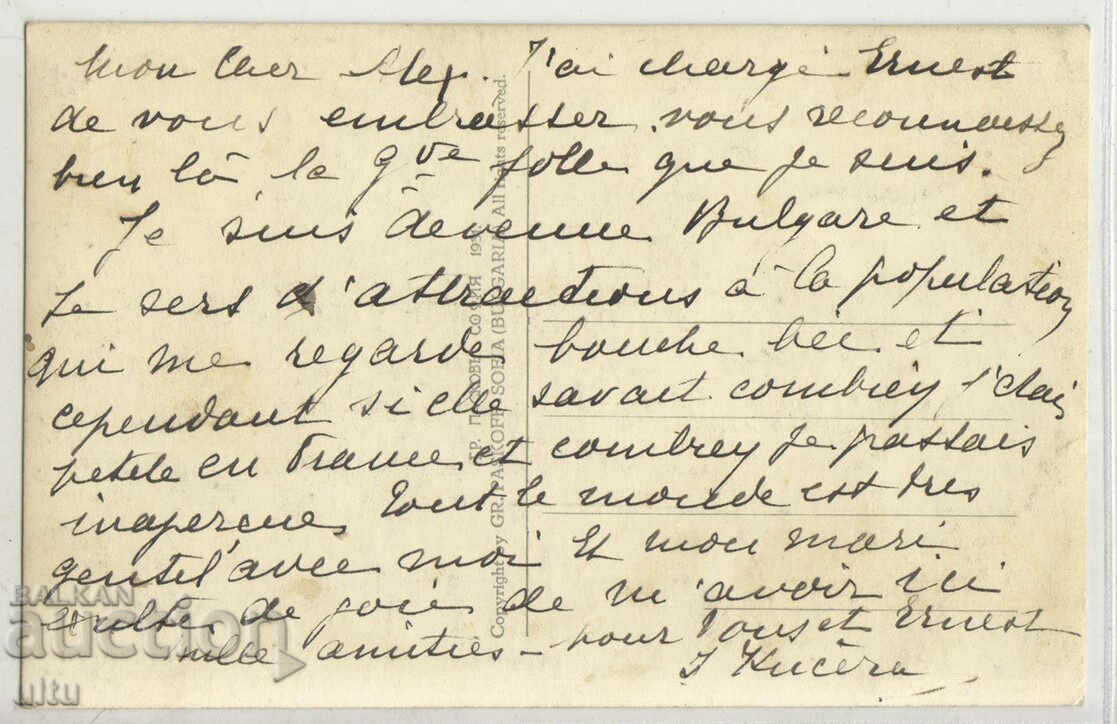 Mon Cher Alex. J'ai chargé Ernest
de vous embrasser, vous reconnaissez
bien là, la gde folle que je suis.
Je suis devenue Bulgare et
Je sers d'attractions à la population
qui me regarde bouche bée et
cependant si elle savait combien j'étais
petite en France et combien je passais
inaperçue, Tout le monde est très
gentil avec moi Et mon mari
exulte de joie de m'avoir ici
mille amitiés - pour Vous et Ernest
J Kučera
ГР. ПАСКОВЪ СОФИЯ 193
Copyright by GR. PASKOFF SOFIA (BULGARIA) All rights reserved.
BALKAN
auction
ultu